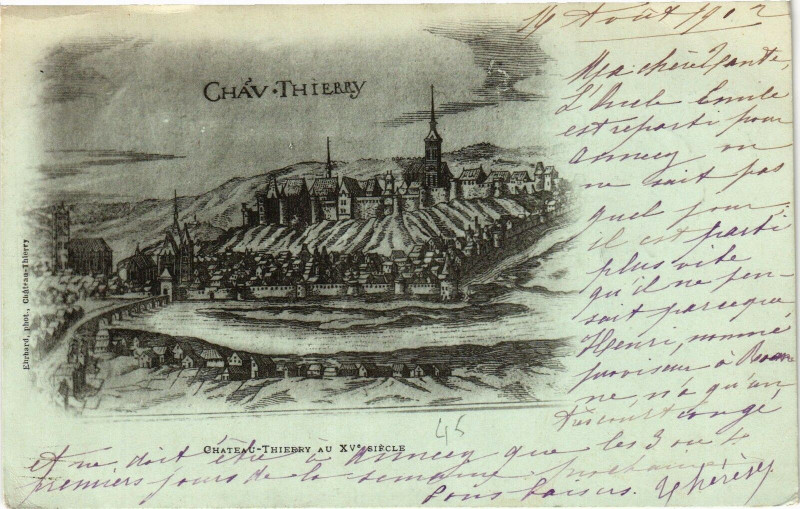 16 Août 1902
CHÂV • THIERRY
Ma chère Tante,
L'Oncle Emile
est reparti pour
Annecy on
ne sait pas
quel jour ;
il est parti
plus vite
qu'il ne pen-
sait parceque
Henri, nommé
proviseur à Roan
ne, n'a qu'un
très court congé
et ne doit être à Annecy que les 3 ou 4
premiers jours de la semaine prochaine
Bons baisers. Thérèse
Ehrhard, phot., Château-Thierry
45
CHATEAU-THIERRY AU XVe SIÈCLE